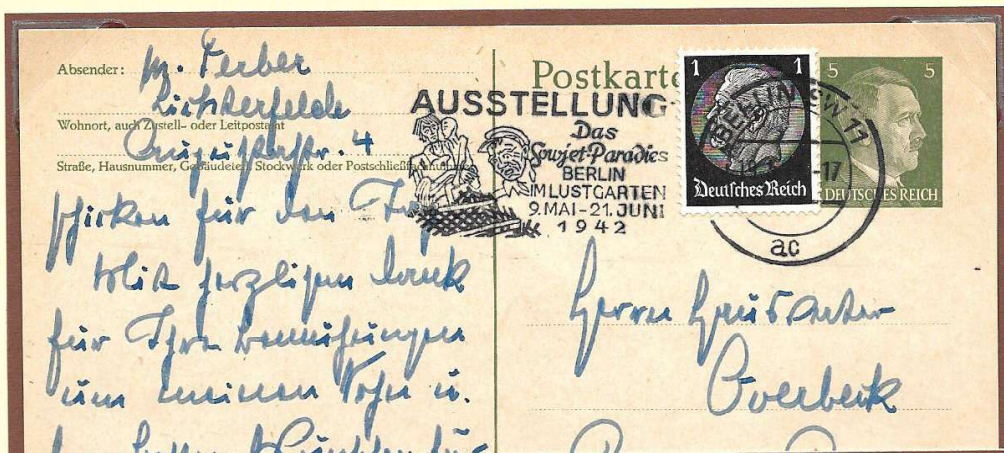 Absender: M. Ferber
Lichterfelde
Wohnort, auch Zustell- oder Leitpostamt
Augustastr. 4
Straße, Hausnummer, Gebäudeteil, Stockwerk oder Postschließfachnummer
schicken für den
Mit herzlichem Dank
für Ihre Bemühungen
um meinen Sohn u.
Postkarte
AUSSTELLUNG
Das
Sowjet-Paradies
BERLIN
IM LUSTGARTEN
9. MAI - 21. JUNI
1942
1 1
Deutsches Reich
BERLIN SW 11
-17
ac
5 5
DEUTSCHES REICH
Herrn
Overbeck